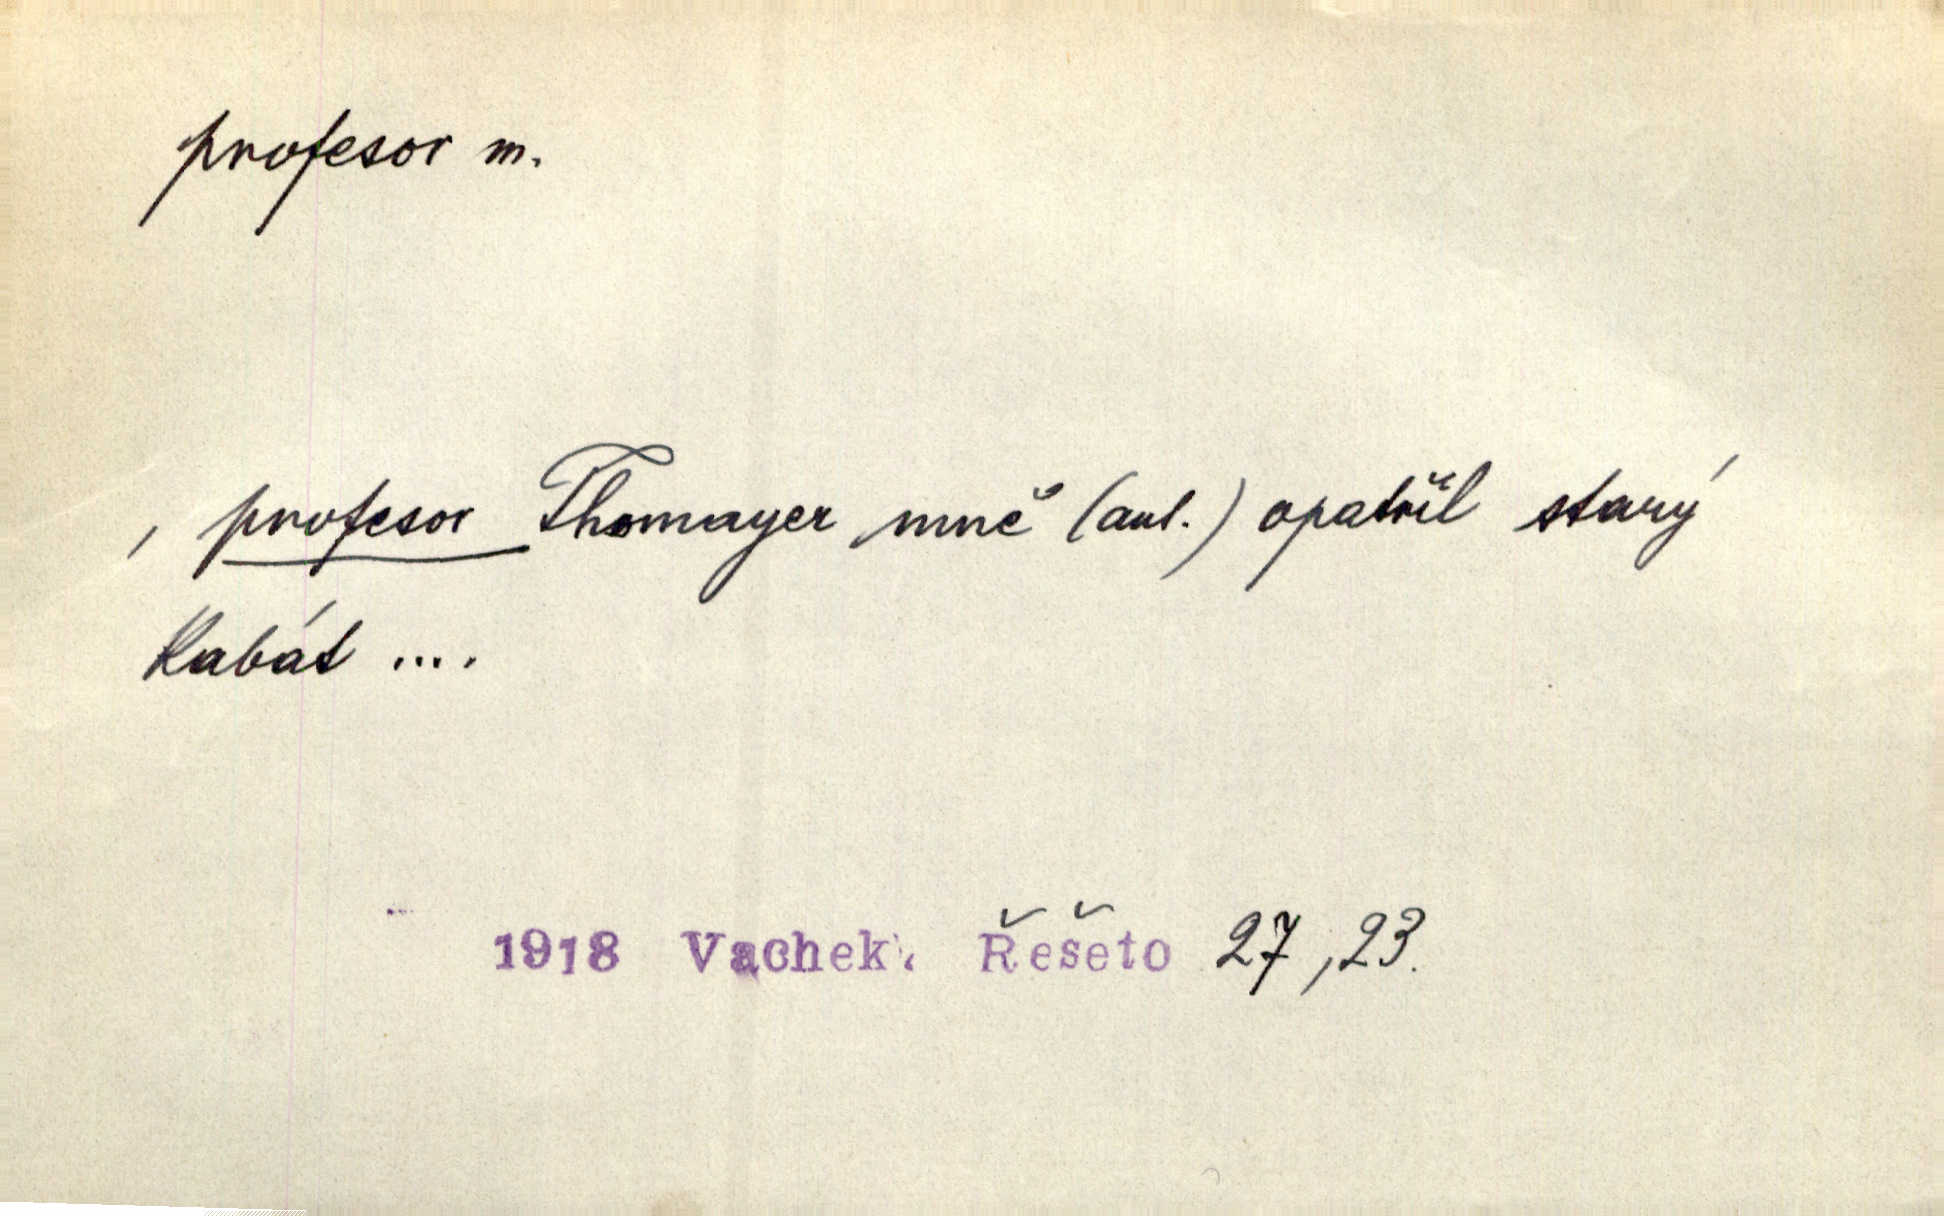 profesor m.
, profesor Thomayer mně (aut.) opatřil starý
kabát ....
1918 Vachek, Řešeto 27,23.